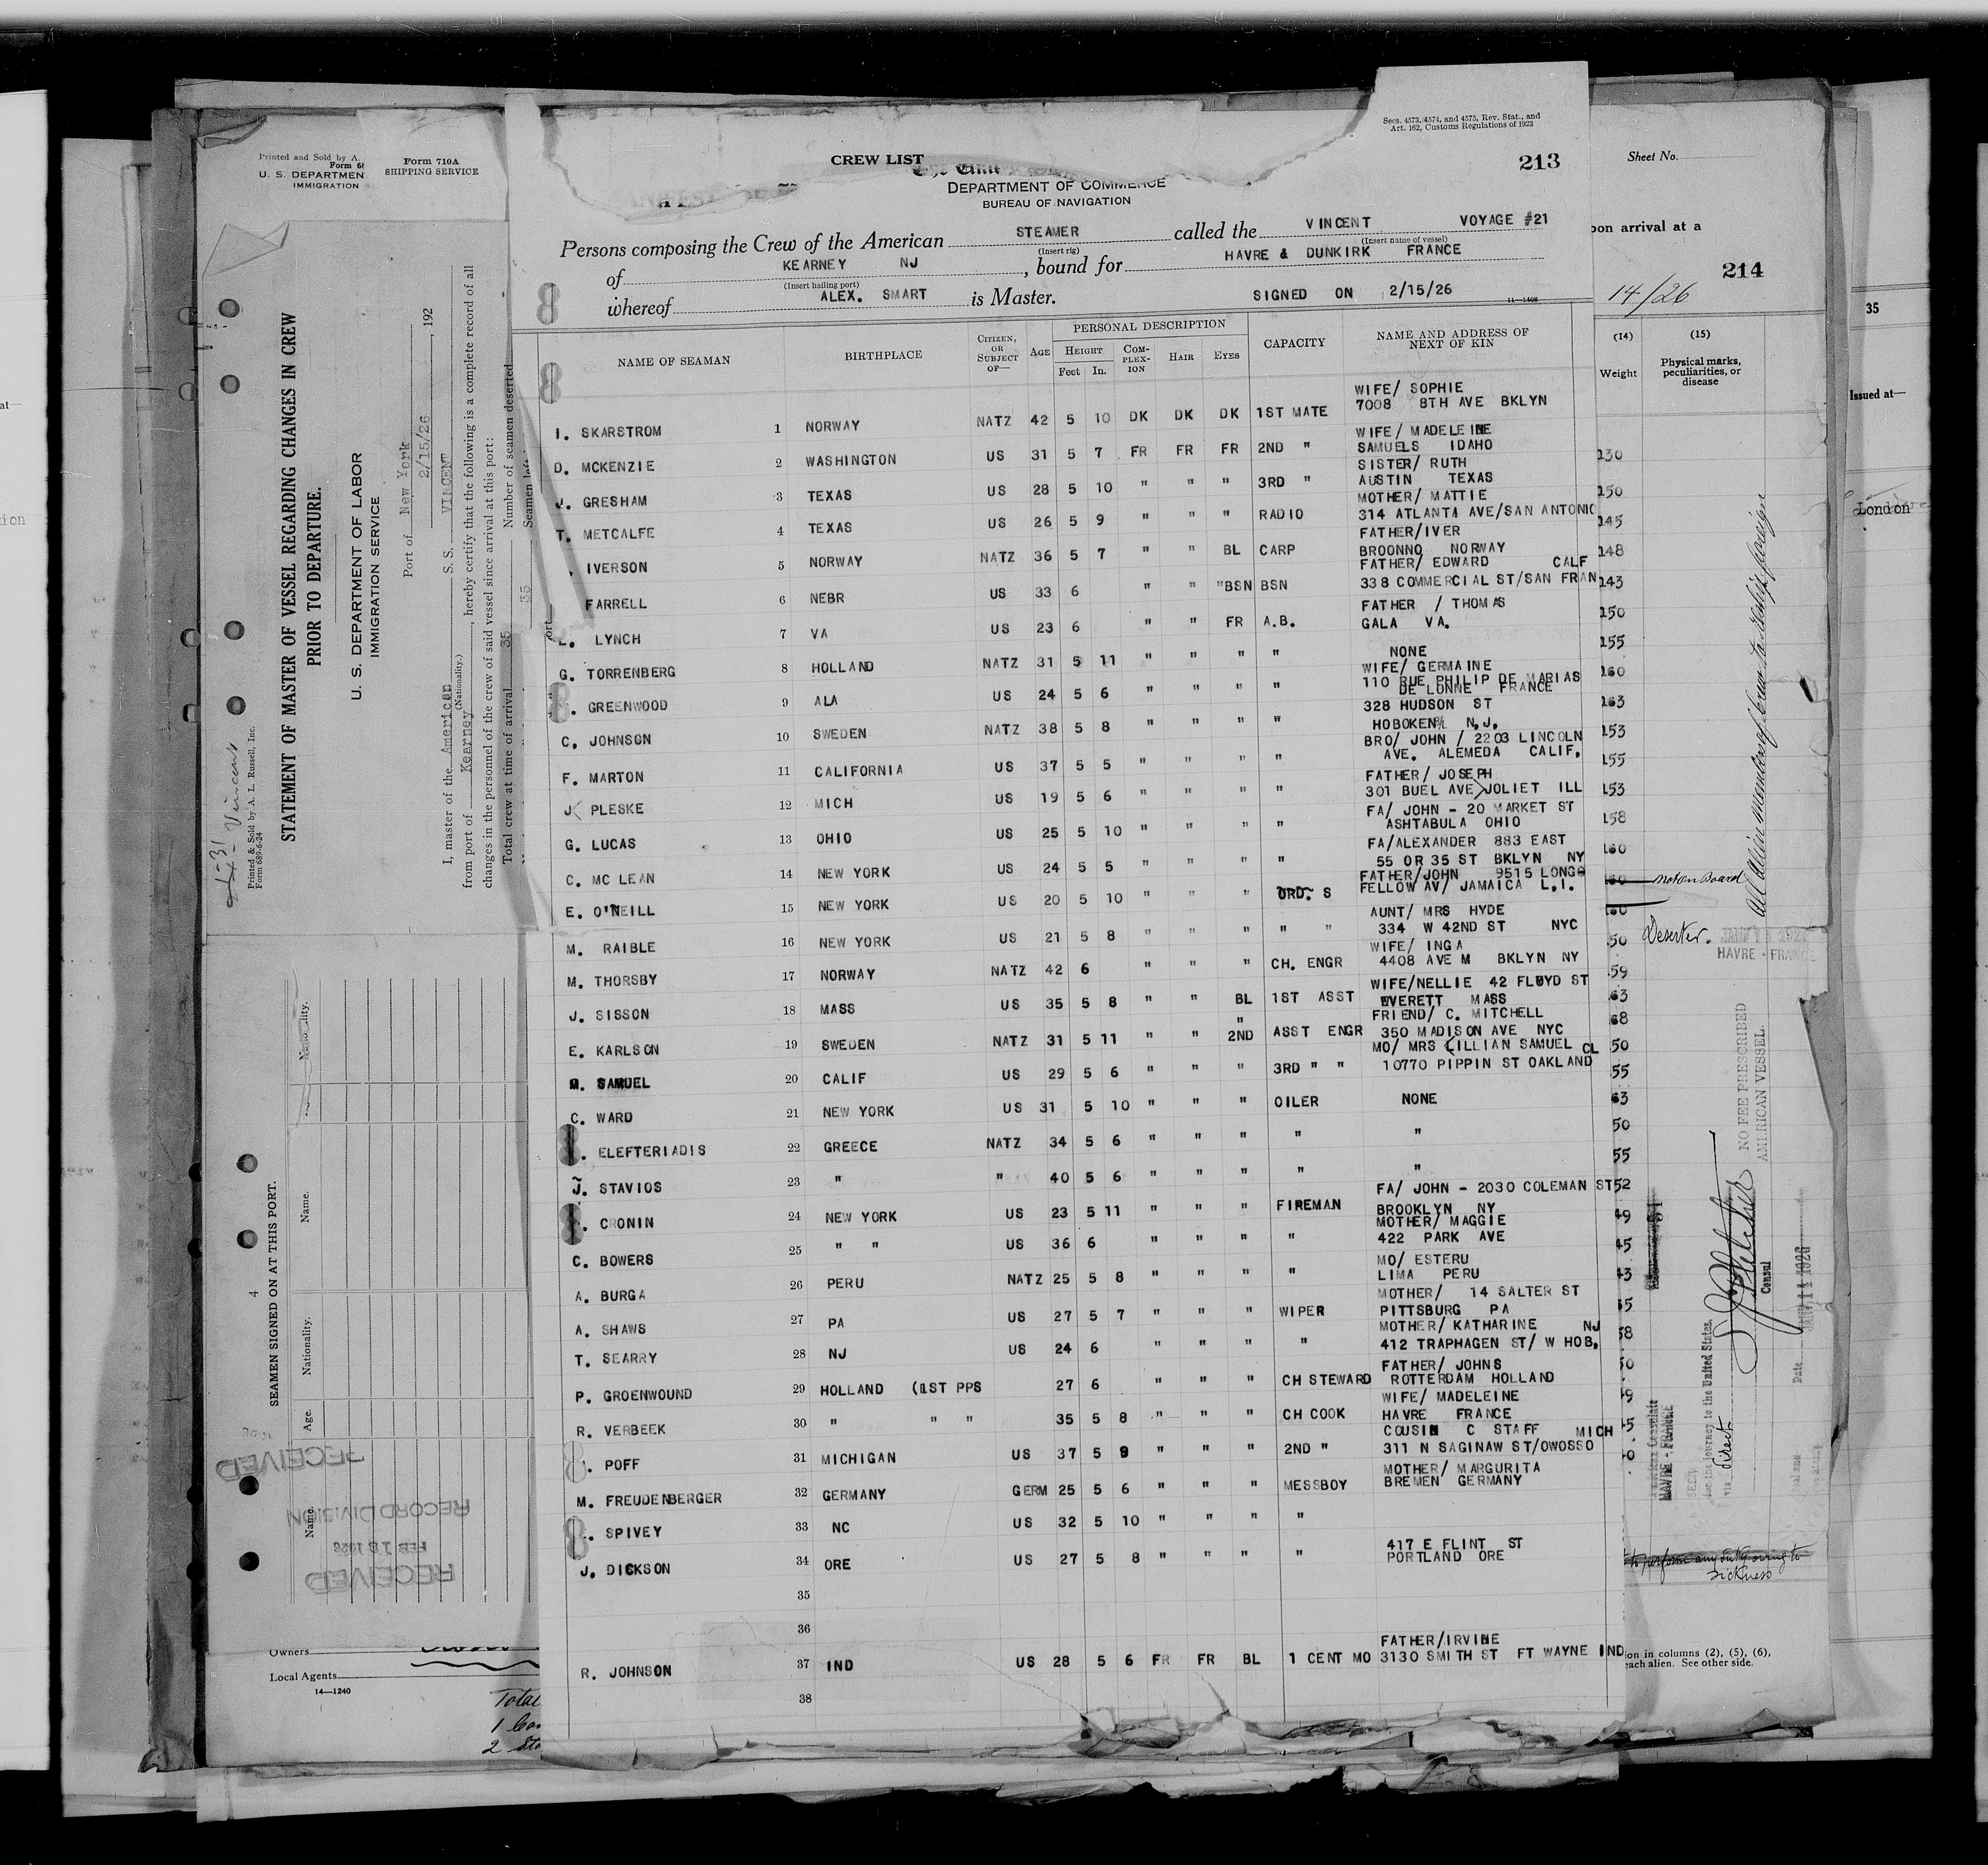 Secs. 4573, 4574, and 4575, Rev. Stat., and
Art. 162, Customs Regulations of 1923
CREW LIST
213
DEPARTMENT OF COMMERCE
BUREAU OF NAVIGATION
Persons composing the Crew of the American STEAMER called the VINCENT VOYAGE #21
(Insert rig) (Insert name of vessel)
of KEARNEY NJ, bound for HAVRE & DUNKIRK FRANCE
(Insert hailing port)
whereof ALEX. SMART is Master. SIGNED ON 2/15/26
11—1408
NAME OF SEAMAN BIRTHPLACE CITIZEN, OR SUBJECT OF— AGE PERSONAL DESCRIPTION CAPACITY NAME AND ADDRESS OF NEXT OF KIN
HEIGHT COM-PLEX-ION HAIR EYES
Feet In.
I. SKARSTROM 1 NORWAY NATZ 42 5 10 DK DK DK 1ST MATE WIFE/ SOPHIE 7008 8TH AVE BKLYN
D. MCKENZIE 2 WASHINGTON US 31 5 7 FR FR FR 2ND " WIFE/ MADELEINE SAMUELS IDAHO
J. GRESHAM 3 TEXAS US 28 5 10 " " " 3RD " SISTER/ RUTH AUSTIN TEXAS
T. METCALFE 4 TEXAS US 26 5 9 " " " RADIO MOTHER/ MATTIE 314 ATLANTA AVE/SAN ANTONIO
. IVERSON 5 NORWAY NATZ 36 5 7 " " BL CARP FATHER/IVER BROONNO NORWAY
FARRELL 6 NEBR US 33 6 " " "BSN BSN FATHER/ EDWARD CALF 338 COMMERCIAL ST/SAN FRAN
L. LYNCH 7 VA US 23 6 " " FR A.B. FATHER / THOMAS GALA VA.
G. TORRENBERG 8 HOLLAND NATZ 31 5 11 " " " " NONE
. GREENWOOD 9 ALA US 24 5 6 " " " " WIFE/ GERMAINE 110 RUE PHILIP DE MARIAS DE LONNE FRANCE
C. JOHNSON 10 SWEDEN NATZ 38 5 8 " " " " 328 HUDSON ST HOBOKEN N.J.
F. MARTON 11 CALIFORNIA US 37 5 5 " " " " BRO/ JOHN / 2203 LINCOLN AVE. ALEMEDA CALIF.
J PLESKE 12 MICH US 19 5 6 " " " " FATHER/ JOSEPH 301 BUEL AVE JOLIET ILL
G. LUCAS 13 OHIO US 25 5 10 " " " " FA/ JOHN - 20 MARKET ST ASHTABULA OHIO
C. MC LEAN 14 NEW YORK US 24 5 5 " " " " FA/ALEXANDER 883 EAST 55 OR 35 ST BKLYN NY
E. O'NEILL 15 NEW YORK US 20 5 10 " " " ORD. S FATHER/JOHN 9515 LONGO FELLOW AV/ JAMAICA L.I.
M. RAIBLE 16 NEW YORK US 21 5 8 " " " " " AUNT/ MRS HYDE 334 W 42ND ST NYC
M. THORSBY 17 NORWAY NATZ 42 6 " " " CH. ENGR WIFE/ INGA 4408 AVE M BKLYN NY
J. SISSON 18 MASS US 35 5 8 " " BL 1ST ASST WIFE/NELLIE 42 FLOYD ST EVERETT MASS
E. KARLSON 19 SWEDEN NATZ 31 5 11 " " " 2ND ASST ENGR FRIEND/ C. MITCHELL 350 MADISON AVE NYC
M. SAMUEL 20 CALIF US 29 5 6 " " " 3RD " " MO/ MRS LILLIAN SAMUEL CL 10770 PIPPIN ST OAKLAND
C. WARD 21 NEW YORK US 31 5 10 " " " OILER NONE
. ELEFTERIADIS 22 GREECE NATZ 34 5 6 " " " " "
J. STAVIOS 23 " " 40 5 6 " " " " "
. CRONIN 24 NEW YORK US 23 5 11 " " " FIREMAN FA/ JOHN - 2030 COLEMAN ST BROOKLYN NY
C. BOWERS 25 " " US 36 6 " " " " MOTHER/ MAGGIE 422 PARK AVE
A. BURGA 26 PERU NATZ 25 5 8 " " " " MO/ ESTERU LIMA PERU
A. SHAWS 27 PA US 27 5 7 " " " WIPER MOTHER/ 14 SALTER ST PITTSBURG PA
T. SEARRY 28 NJ US 24 6 " " " " MOTHER/ KATHARINE NJ 412 TRAPHAGEN ST/ W HOB.
P. GROENWOUND 29 HOLLAND (1ST PPS 27 6 " " " CH STEWARD FATHER/ JOHNS ROTTERDAM HOLLAND
R. VERBEEK 30 " " " 35 5 8 " " " CH COOK WIFE/ MADELEINE HAVRE FRANCE
. POFF 31 MICHIGAN US 37 5 9 " " " 2ND " COUSIN C STAFF MICH 311 N SAGINAW ST/OWOSSO
M. FREUDENBERGER 32 GERMANY GERM 25 5 6 " " " MESSBOY MOTHER/ MARGURITA BREMEN GERMANY
. SPIVEY 33 NC US 32 5 10 " " " "
J. DICKSON 34 ORE US 27 5 8 " " " " 417 E FLINT ST PORTLAND ORE
35
36
R. JOHNSON 37 IND US 28 5 6 FR FR BL 1 CENT MO FATHER/IRVINE 3130 SMITH ST FT WAYNE IND
38
Printed and Sold by A.
U. S. DEPARTMEN
IMMIGRATION
Form 710A
SHIPPING SERVICE
STATEMENT OF MASTER OF VESSEL REGARDING CHANGES IN CREW
PRIOR TO DEPARTURE.
U. S. DEPARTMENT OF LABOR
IMMIGRATION SERVICE
Port of New York
2/15/26, 192
I, master of the American S. S. VINCENT
(Nationality.)
from port of Kearney, hereby certify that the following is a complete record of all
changes in the personnel of the crew of said vessel since arrival at this port:
Total crew at time of arrival 35 Number of seamen deserted
35
Printed & Sold by A. L. Russell, Inc.
Form 689-6-24
SEAMEN SIGNED ON AT THIS PORT.
4
Name. Age. Nationality. Name.
RECEIVED
RECORD DIVISION
FEB 18 1926
RECEIVED
Owners
Local Agents
14—1240
Total
Sheet No.
pon arrival at a
214
14/26
(14) (15)
Weight Physical marks, peculiarities, or disease
130
150
145
148
143
150
155
160
163
153
155
153
158
160
Not on Board
Deserter.
HAVRE - FRANCE
NO FEE PRESCRIBED
AMERICAN VESSEL.
Consul
for the journey to the United States.
via direct
Date
to perform any duty owing to
sickness
ion in columns (2), (5), (6),
each alien. See other side.
35
Issued at—
London